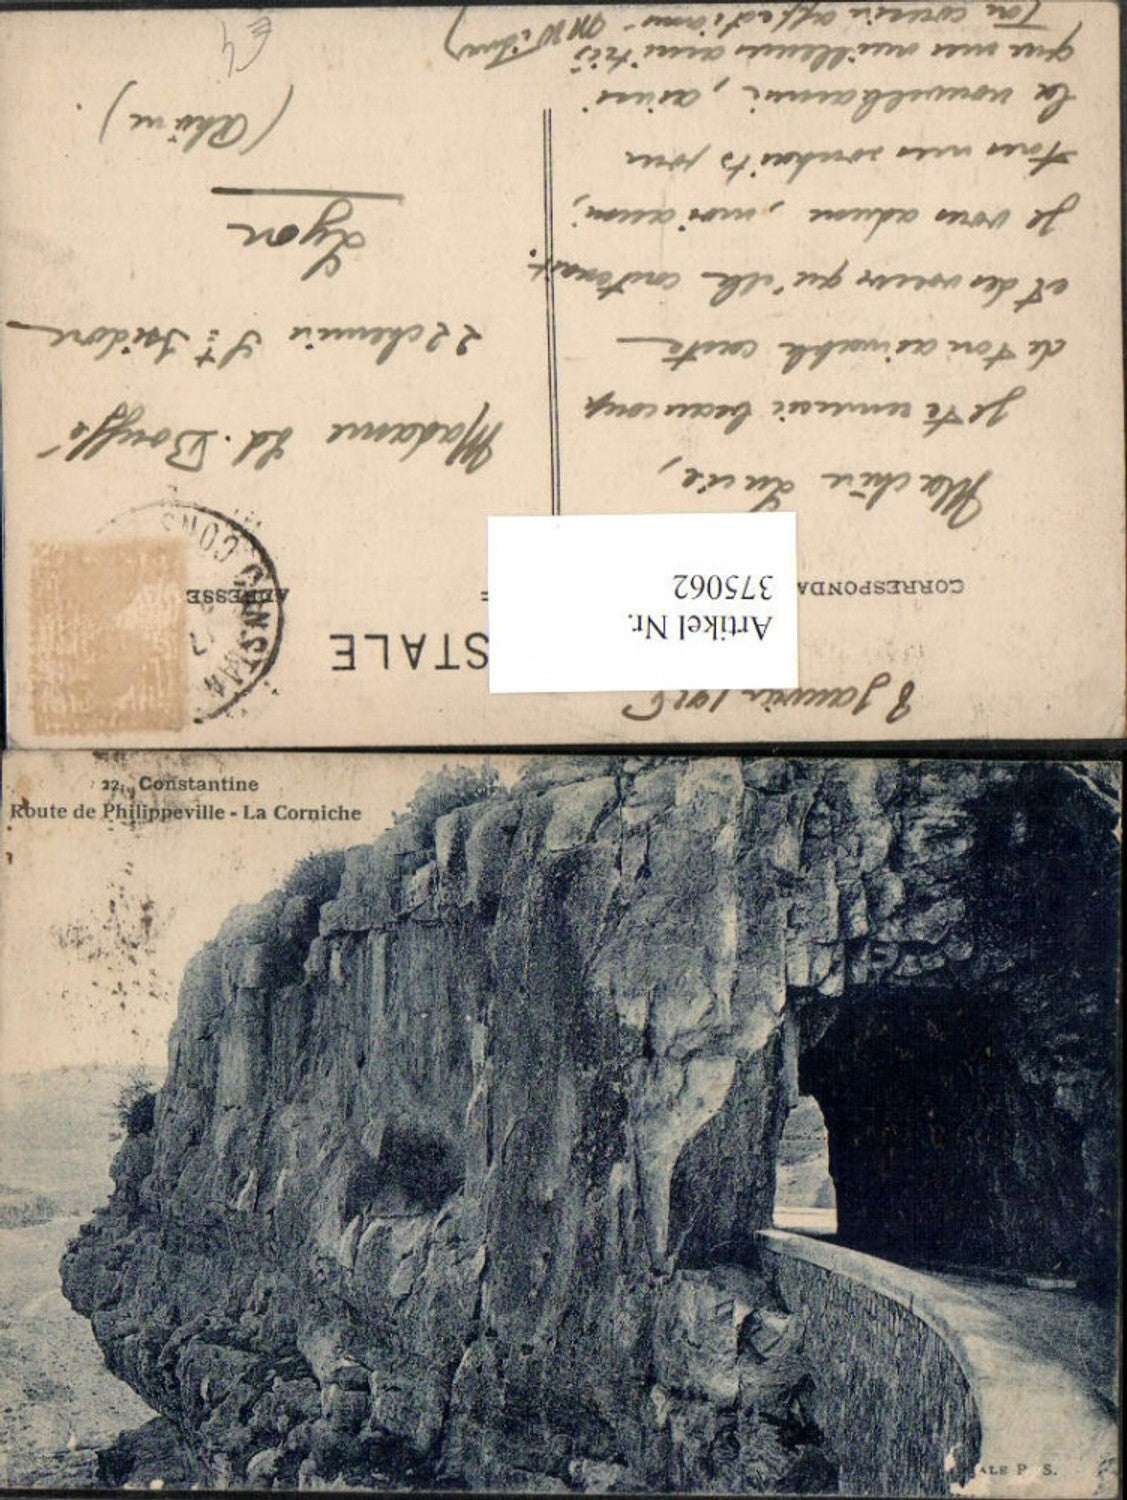 8 Janvier 1926
STALE
CORRESPONDA
ADRESSE
Artikel Nr.
375062
CONSTAN
CONS
Ma chère Lucie,
Je te remercie beaucoup
de ton aimable carte
et des voeux qu'elle contenait.
Je vous adresse, moi aussi,
tous mes souhaits pour
la nouvelle année, ainsi
que mes meilleures amitiés
Ton cousin affectionné
Madame Ld. Bouffé
22 chemin St Isidore
Lyon
(Rhône)
€4
22. Constantine
Route de Philippeville - La Corniche
ALE P S.